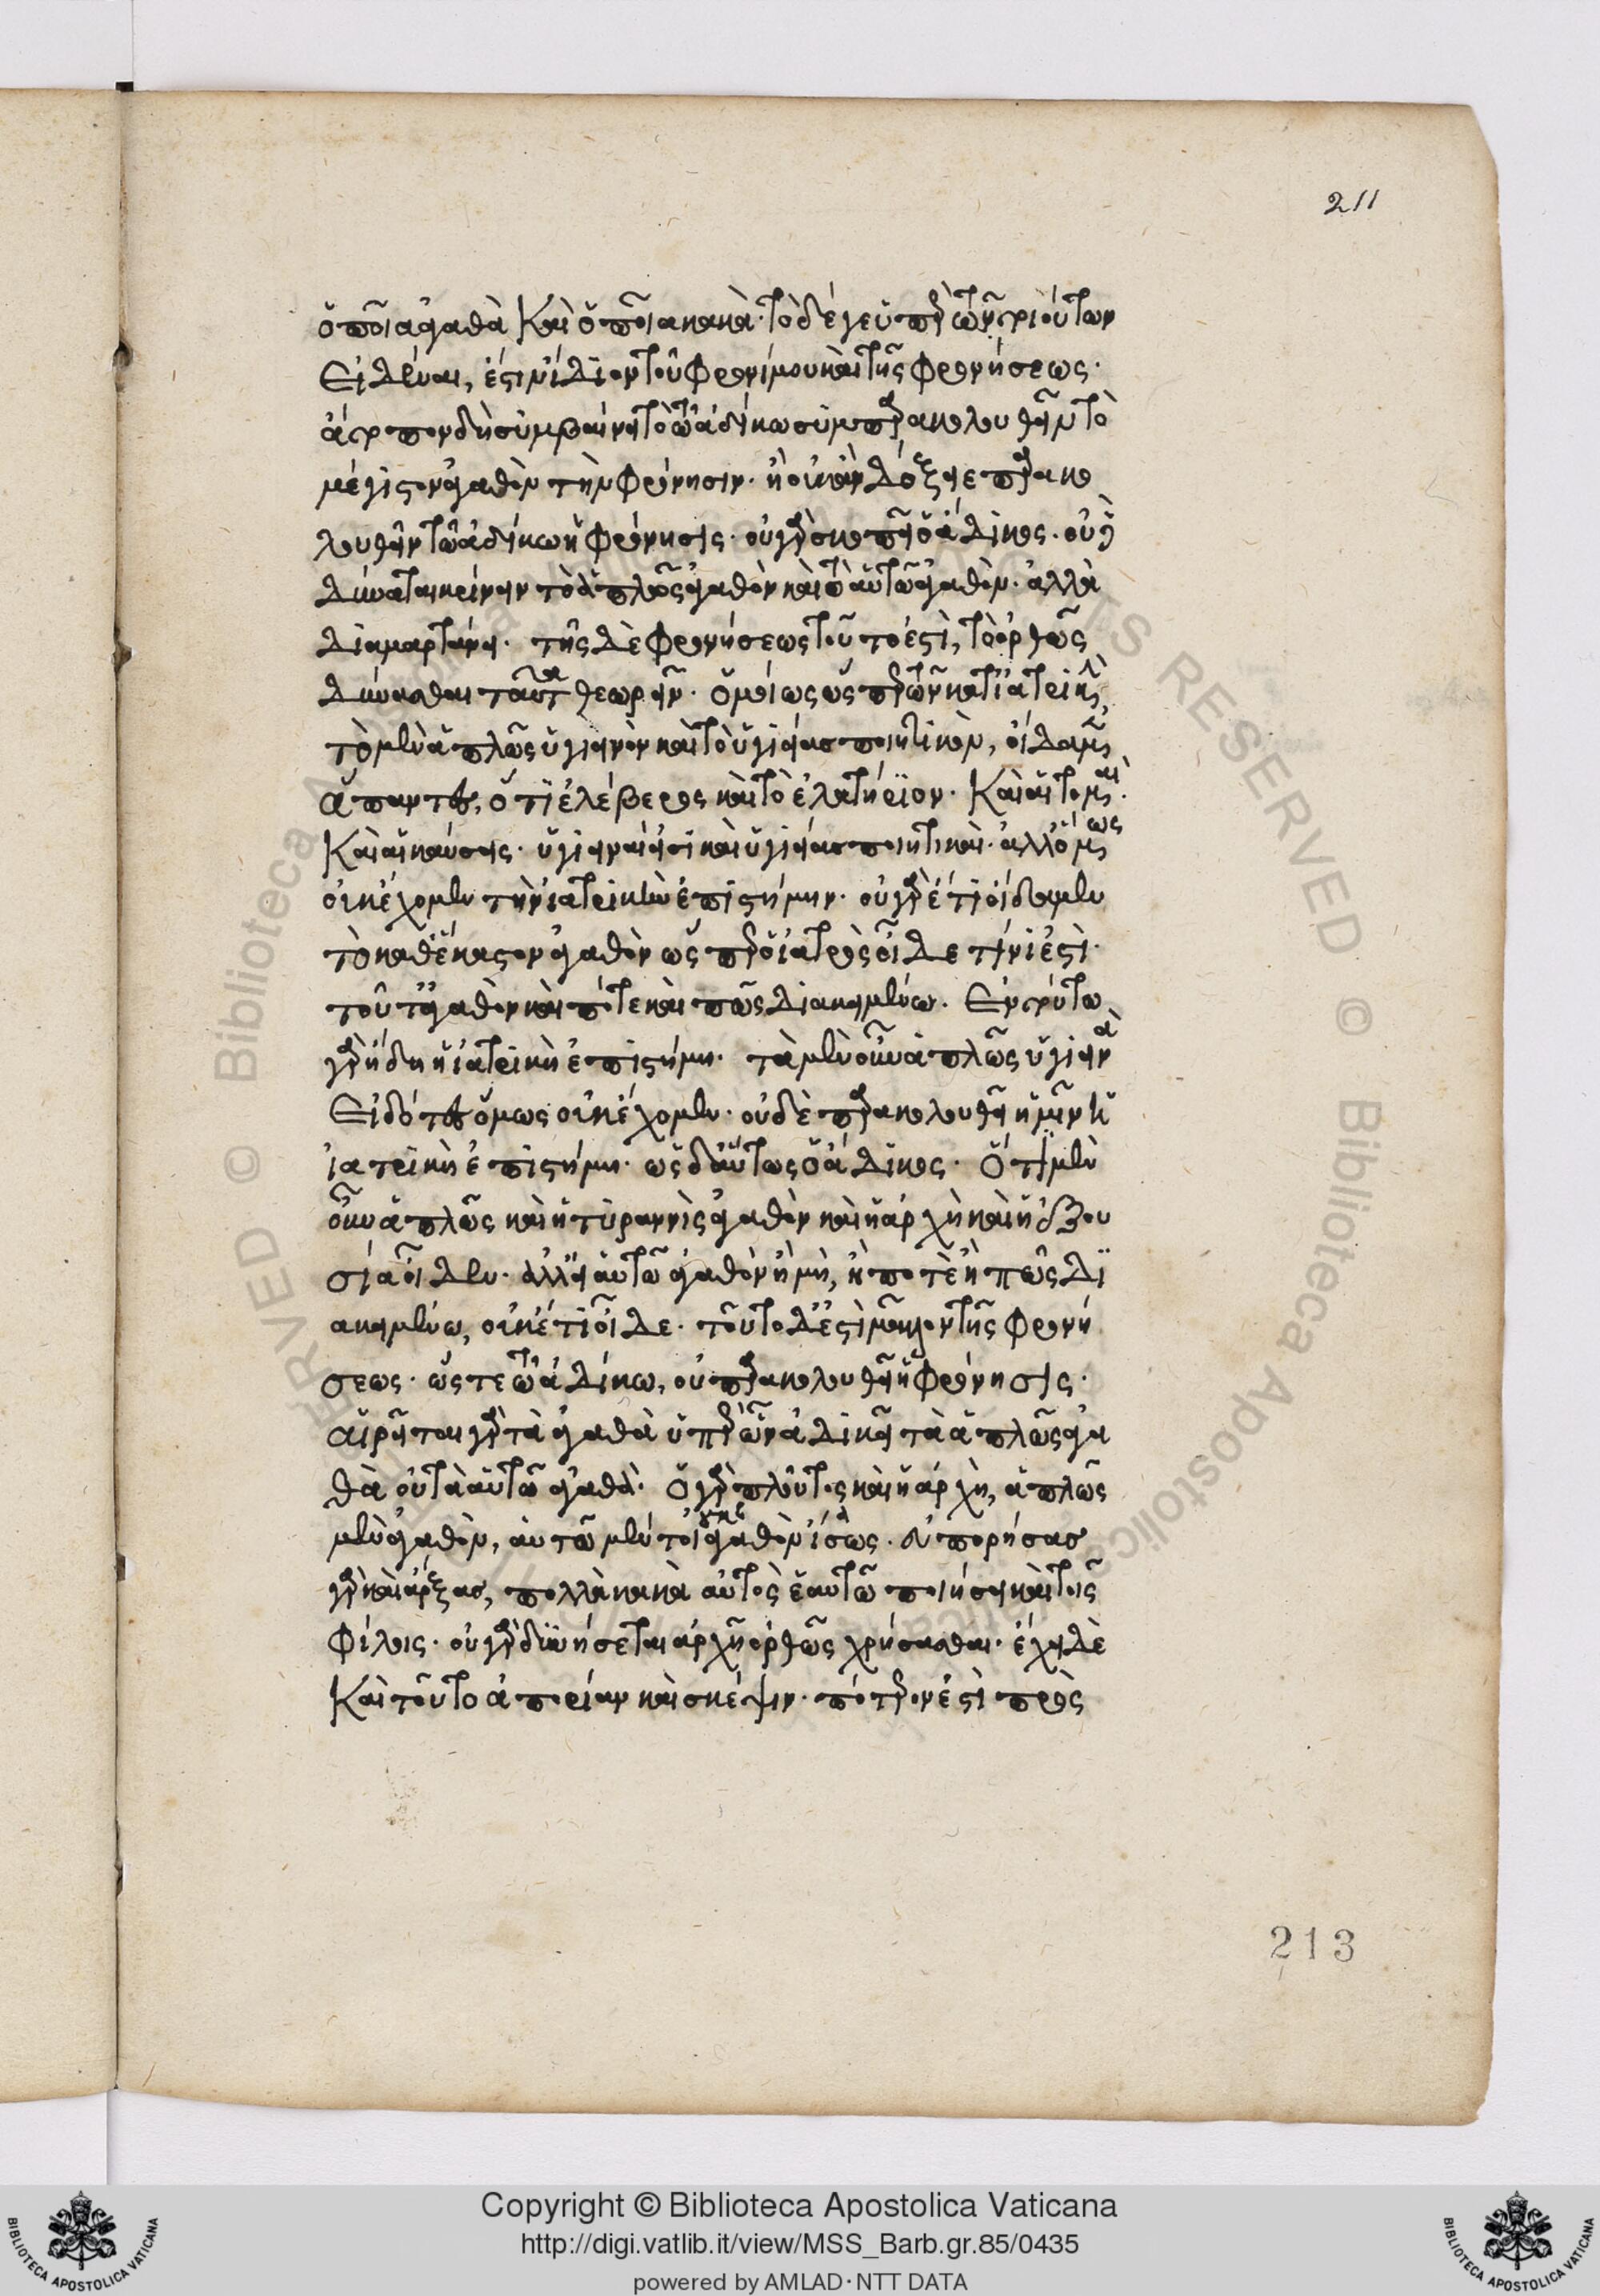 ὁποῖα ἀγαθὰ καὶ ὁποῖα κακά· τὸ δέ γε ὑπὲρ τῶν τοιούτων
εἰδέναι, ἔστιν ἴδιον τοῦ φρονίμου καὶ τῆς φρονήσεως·
ἄτοπον δὴ συμβαίνει τὸ τῶ ἀδίκω συμπαρακολουθεῖν τὸ
μέγιστον ἀγαθὸν τὴν φρόνησιν· ἢ οὐκ ἂν δόξειε παρακο
λουθεῖν τῶ ἀδίκω ἡ φρόνησις· οὐ γὰρ σκοπεῖ ὁ ἄδικος· οὐδὲ
δύναται κρίνειν τὸ ἁπλῶς ἀγαθὸν καὶ τὸ αὑτῶ ἀγαθόν· ἀλλὰ
διαμαρτάνει· τῆς δὲ φρονήσεως τοῦτο ἐστὶ, τὸ ὀρθῶς
δύνασθαι ταῦτα θεωρεῖν· ὁμοίως ὡς ὑπὲρ τῶν κατ' ἰατρικὴν
τὸ μὲν ἁπλῶς ὑγιεινὸν καὶ τὸ ὑγιείας ποιητικὸν, οἴδαμεν
ἅπαντες, ὅτι ἐλέβερος καὶ τὸ ἐλατήριον· καὶ αἱ τομαὶ·
καὶ αἱ καύσεις· ὑγιειναί εἰσι καὶ ὑγιείας ποιητικαὶ· ἀλλ' ὅμως
οὐκ ἔχομεν τὴν ἰατρικὴν ἐπιστήμην· οὐ γὰρ ἔτι οἴδαμεν
τὸ καθ' ἕκαστον ἀγαθὸν ὥσπερ ὁ ἰατρὸς οἶδε τίνι ἐστὶ
τοῦτ' ἀγαθὸν καὶ πότε καὶ πῶς διακειμένω· ἐν τούτω
γὰρ ἤδη ἡ ἰατρικὴ ἐπιστήμη· τὰ μὲν οὖν ἁπλῶς ὑγιεινὰ
εἰδότες ὅμως οὐκ ἔχομεν· οὐδὲ παρακολουθεῖ ἡμῖν ἡ
ἰατρικὴ ἐπιστήμη· ὡς δ' αὕτως ὁ ἄδικος· ὅτι μὲν
οὖν ἁπλῶς καὶ ἡ τυραννὶς ἀγαθὸν καὶ ἡ ἀρχὴ καὶ ἡ ἐξου
σία οἶδεν· ἀλλ' εἰ αὑτῶ ἀγαθὸν ἢ μὴ, ἢ ποτὲ ἢ πῶς δι
ακειμένω, οὐκέτι οἶδε· τοῦτο δ' ἐστὶ μᾶλλον τῆς φρονή
σεως· ὥστε τῶ ἀδίκω, οὐ παρακολουθεῖ ἡ φρόνησις·
αἱρεῖται γὰρ τὰ ἀγαθὰ ὑπὲρ ὧν ἀδικεῖ τὰ ἁπλῶς ἀγα
θὰ οὐ τὰ αὑτῶ ἀγαθὰ· ὁ γὰρ πλοῦτος καὶ ἡ ἀρχὴ, ἁπλῶς
μὲν ἀγαθὸν, αὐτῶ μέντοι γε οὐκ ἀγαθὸν ἴσως· εὐπορήσας
γὰρ καὶ ἄρξας, πολλὰ κακὰ αὐτὸς ἑαυτῶ ποιήσει καὶ τοῖς
φίλοις· οὐ γὰρ δυνήσεται ἀρχῆ ὀρθῶς χρήσασθαι· ἔχει δὲ
καὶ τοῦτο ἀπορίαν καὶ σκέψιν· πότερον ἐστὶ πρὸς
211
213
Copyright © Biblioteca Apostolica Vaticana
http://digi.vatlib.it/view/MSS_Barb.gr.85/0435
powered by AMLAD·NTT DATA